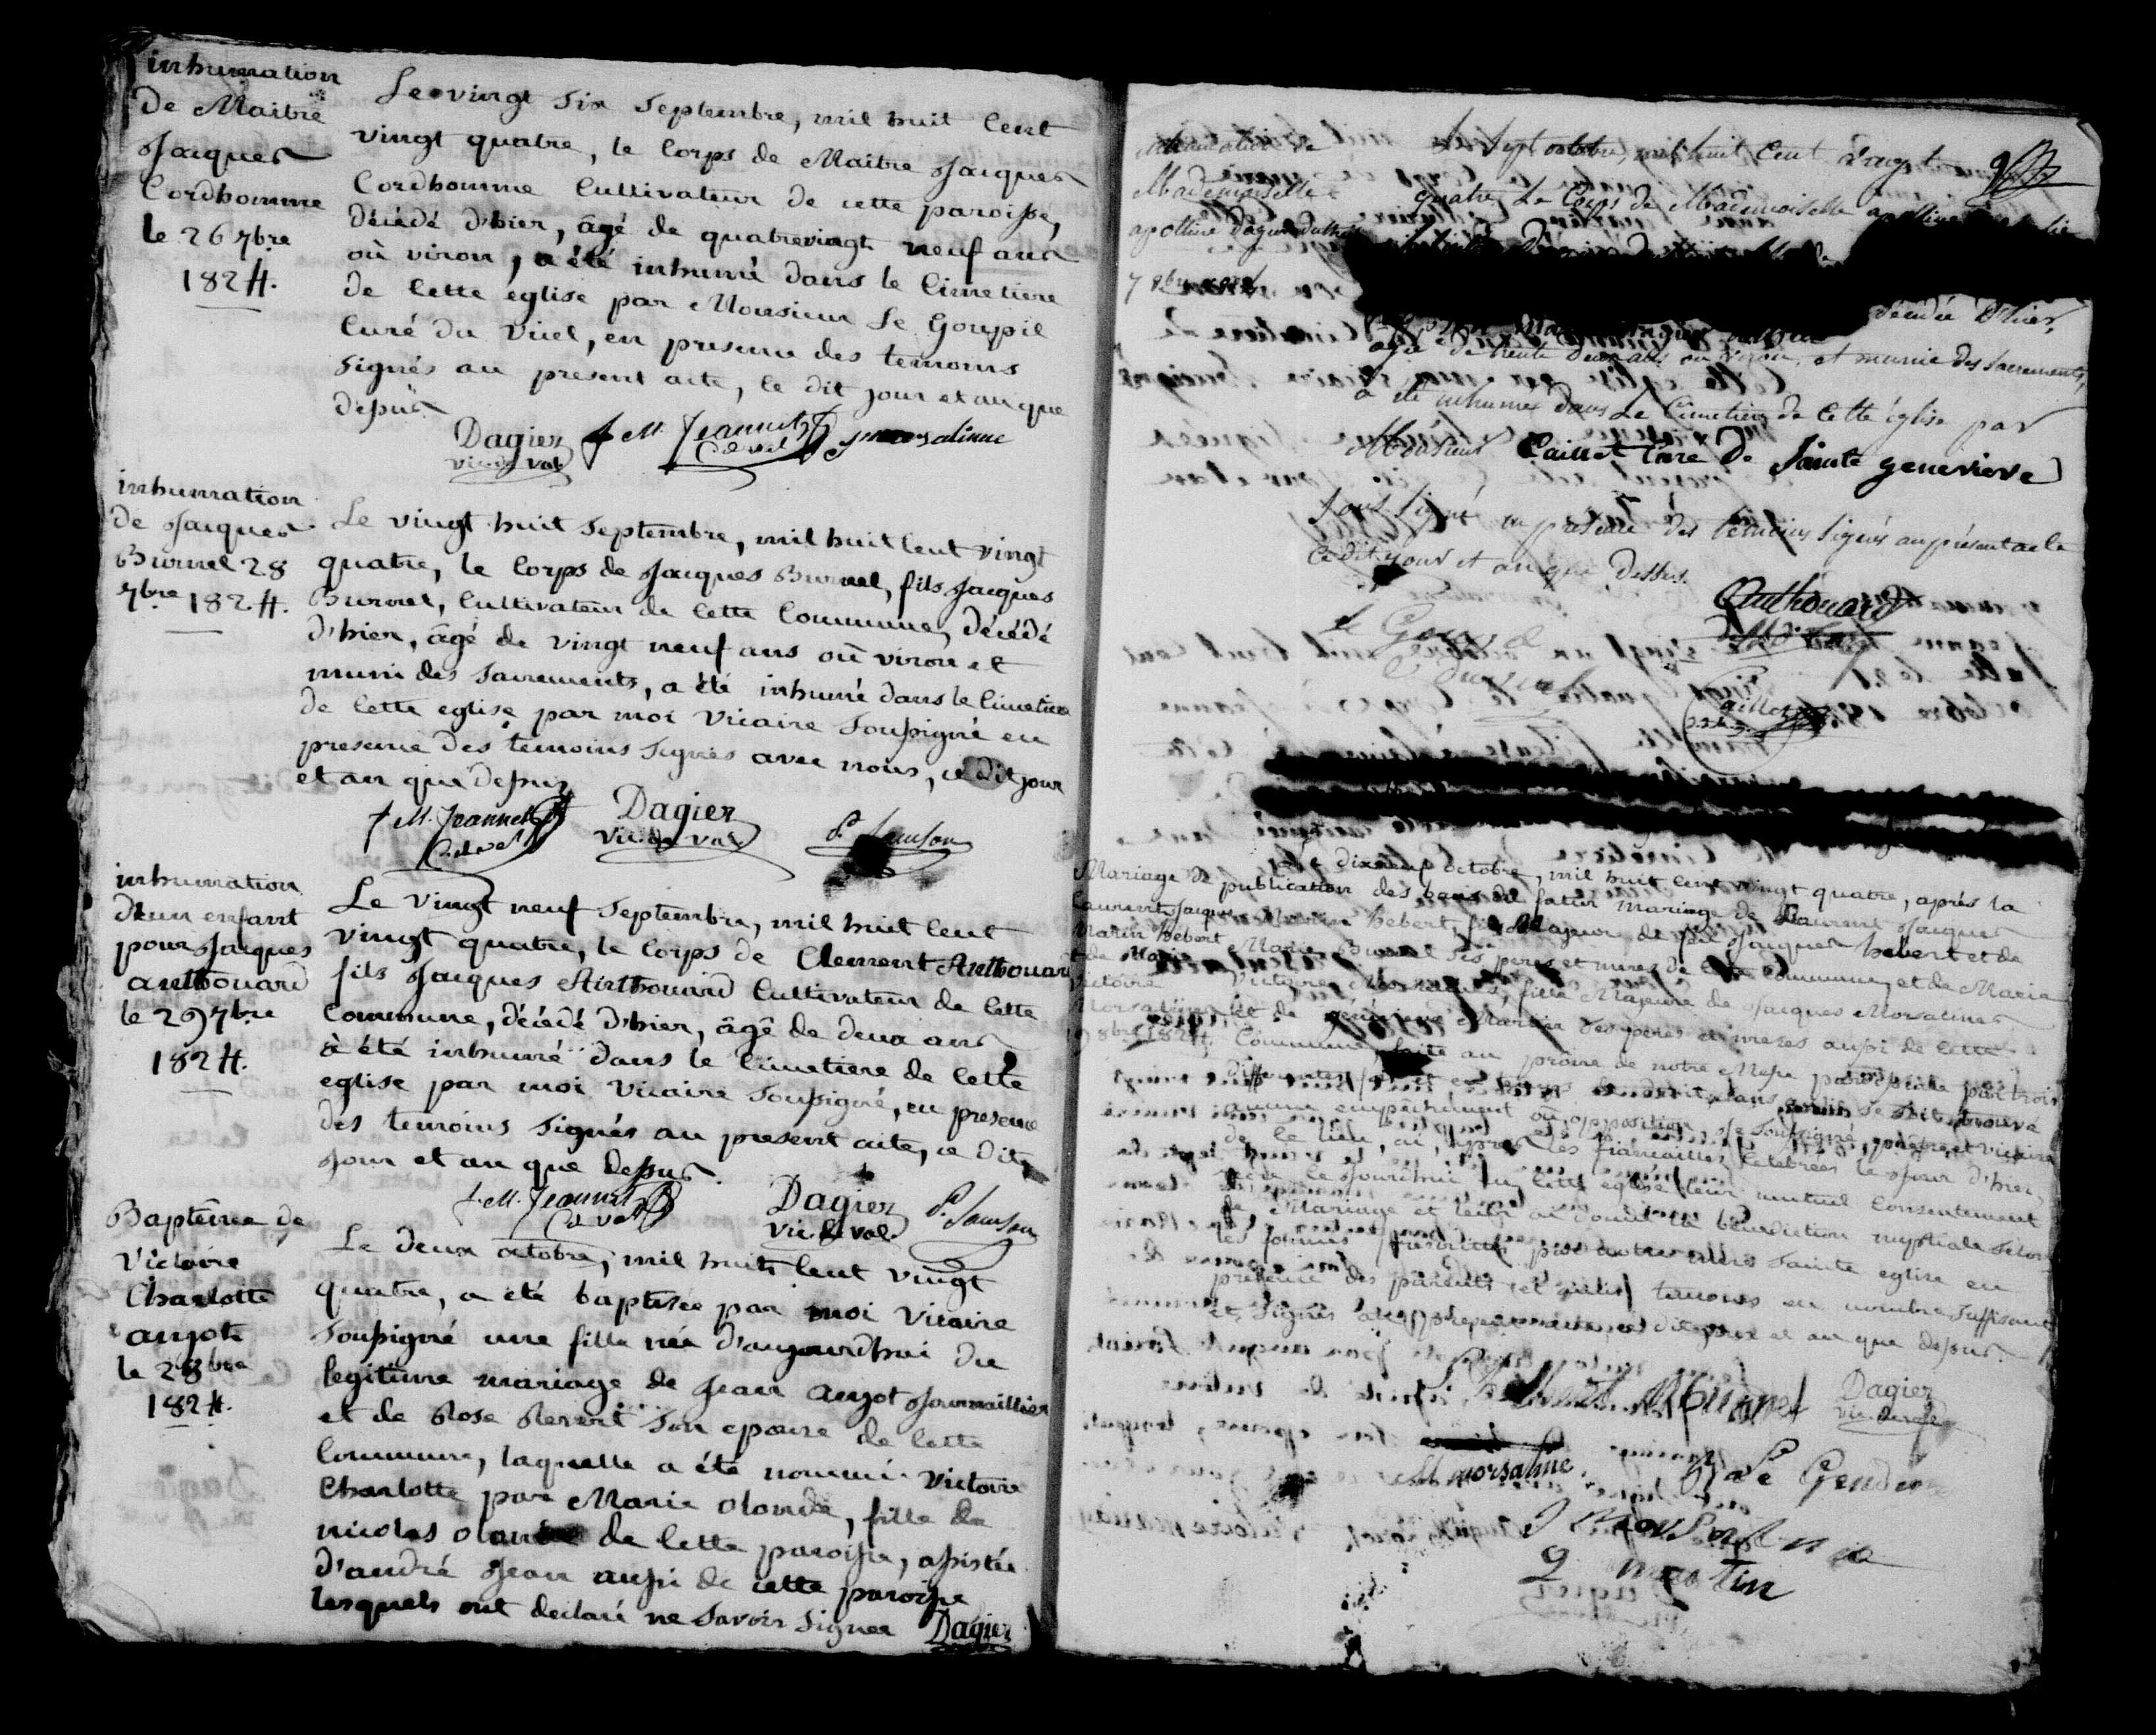 inhumation
de Maitre
Jacques
Cordhomme
le 26 7bre
1824.
Le vingt six Septembre, mil huit Cent
vingt quatre, le Corps de Maitre Jacques
Cordhomme Cultivateur de cette paroisse,
décédé d'hier, âgé de quatrevingt neuf ans
où viron, a été inhumé dans le Cimetiere
de Cette eglise par Monsieur Le Goupil
Curé du Vicel, en presence des temoins
signés au present acte, le dit jour et an que
dessus
Dagier J M. Jeannet
vic. de val C. de val
inhumation
de Jacques
Burnel 28
7bre 1824.
Le vingt huit Septembre, mil huit Cent vingt
quatre, le Corps de Jacques Burnel, fils Jacques
Burnel, Cultivateur de Cette Commune, décédé
d'hier, âgé de vingt neuf ans où viron et
muni des Sacrements, a été inhumé dans le Cimetiere
de Cette eglise par moi Vicaire Soussigné en
presence des temoins signés avec nous, ce dit jour
et an que dessus
J M. Jeannet Dagier P. Samson
C. de val vic. de val
inhumation
d'un enfant
pour Jacques
anthouard
le 29 7bre
1824.
Le vingt neuf Septembre, mil huit Cent
vingt quatre, le Corps de Clement Anthouard
fils Jacques Anthouard Cultivateur de Cette
Commune, décédé d'hier, âgé de deux ans
à été inhumé dans le Cimetiere de Cette
eglise par moi Vicaire Soussigné, en presence
des temoins signés au present acte, ce dit
Jour et an que dessus.
J. M. Jeannet Dagier P. Samson
C. de val vic. de val.
Baptême de
Victoire
Charlotte
anzot
le 2 8bre
1824.
Le deux octobre, mil huit Cent vingt
quatre, a été baptisée par moi Vicaire
Soussigné une fille née d'aujourdhui du
legitime mariage de Jean anzot Journaillier
et de Rose son epouse de Cette
Commune, laquelle a été nommée Victoire
Charlotte par Marie olonde, fille de
nicolas olonde de Cette paroisse, assistée
d'andré Jean aussi de cette paroisse
lesquels ont declaré ne Savoir Signer Dagier
inhumation de
Mademoiselle
apolline
7 8bre
Le Sept octobre, mil huit Cent vingt
quatre, Le Corps de Mademoiselle apolline
décédée d'hier,
agée de trente deux ans ou viron, et munie des Sacrements,
a été inhumée dans Le Cimetiere de Cette église par
Monsieur Caillet Curé De Sainte genevieve
Sous signé en présence des témoins signés au présent acte
Ce dit jour et an que Dessus.
Anthouard
Le Goupil
Caillet
Mariage de
Laurent Jacques
Marin hebert
et de Marie
Victoire
Morsaline
19 8bre 1824
Le dixneuf octobre, mil huit Cent vingt quatre, après la
publication des bans du futur mariage de Laurent Jacques
Marin hebert, fils Majeur de feu Jacques hebert et de
Marie Burnel Ses peres et meres de Cette Commune, et de Marie
Victoire Morsaline, fille Majeure de Jacques Morsaline
et de Martin Ses peres et meres aussi de Cette
Commune, faite au prône de notre Messe paroissiale par trois
differentes sans qu'il se soit trouvé
aucun empêchement ou opposition, Je Soussigné, prêtre et Vicaire
de Ce lieu, ai, après les fiançailles Celebrées le Jour d'hier,
reçu Ce Jourdhui en Cette eglise leur mutuel Consentement
de Mariage et leur ai donné la bénédiction nuptiale Selon
les formes prescrites par notre mere Sainte eglise en
présence des parents et amis temoins en nombre suffisant
et signés au present acte ce dit jour et an que dessus.
hebert M Burnel Dagier
vic. de val
M morsaline Le Gendre
J Morsaline
martin